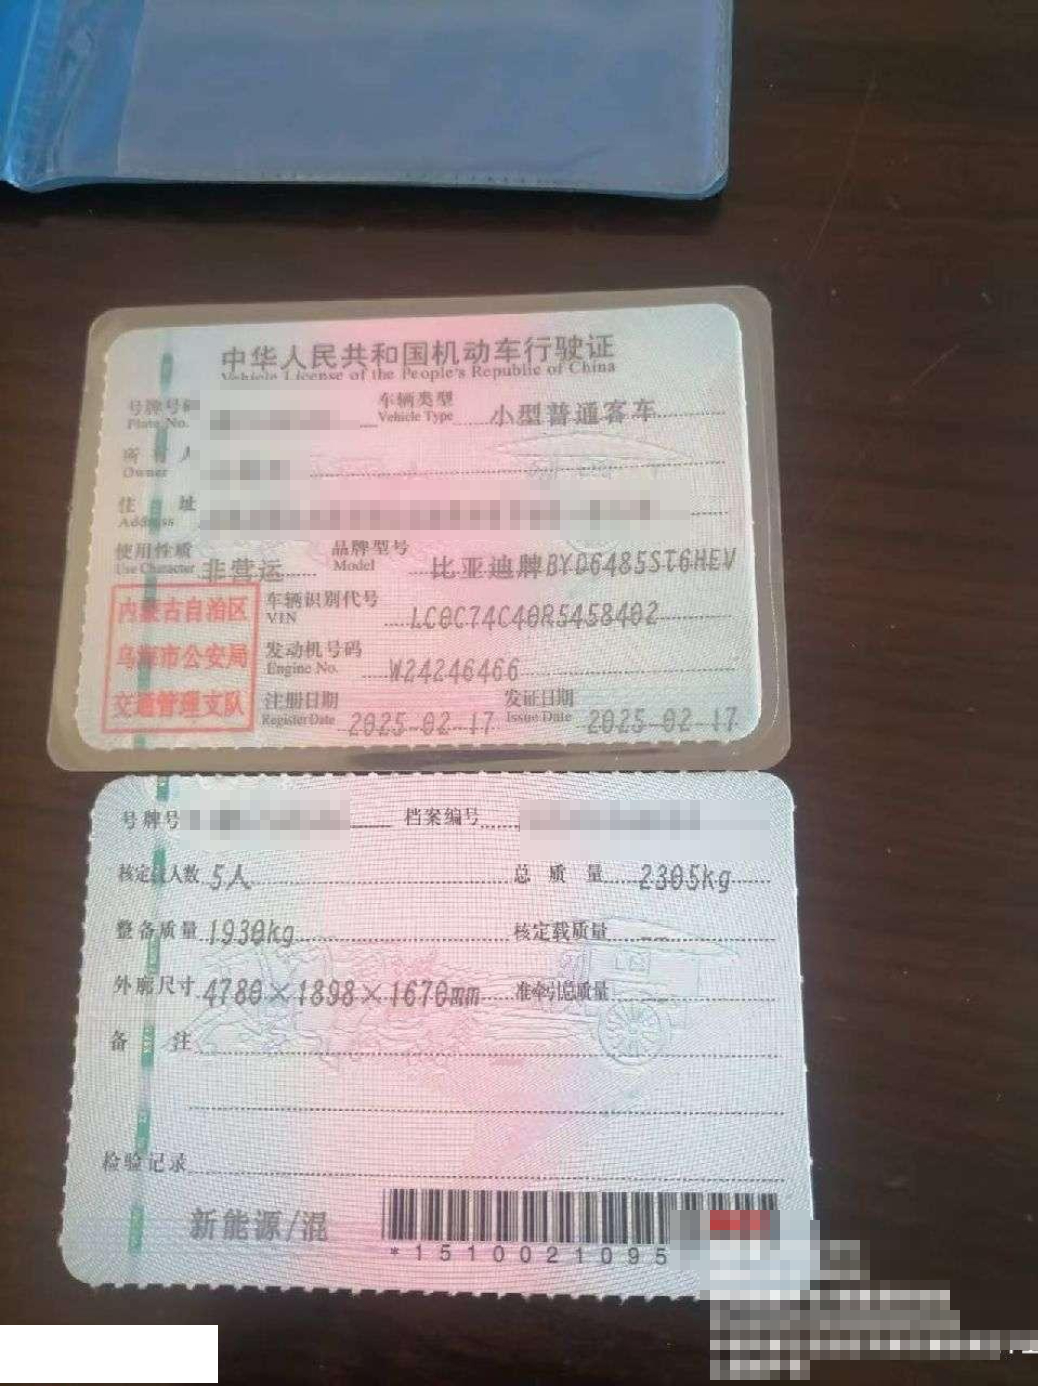 中华人民共和国机动车行驶证
Vehicle License of the People's Republic of China
号牌号码 车辆类型 小型普通客车
Plate No. Vehicle Type
所有人
Owner
住址
Address
使用性质 非营运 品牌型号 比亚迪牌BYD6485ST6HEV
Use Character Model
内蒙古自治区
乌海市公安局
交通管理支队
车辆识别代号 LC0C74C40R5458402
VIN
发动机号码 W24246466
Engine No.
注册日期 2025-02-17 发证日期 2025-02-17
Register Date Issue Date
号牌号 档案编号
核定载人数 5人 总质量 2305kg
整备质量 1930kg 核定载质量 --
外廓尺寸 4780×1898×1670mm 准牵引总质量 --
备注
检验记录
新能源/混
*1510021095